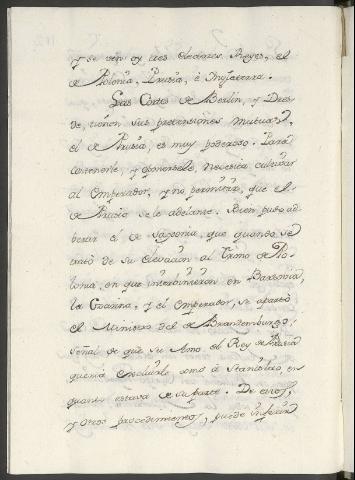 y se ven oy tres Electores Reyes, el
de Polonia, Prusia, è Inglaterra.
Las Cortes de Berlin, y Dres
de, tienen sus pretensiones mutuas,
el de Prusia, es muy poderoso. Para
contenerle, y oponersele, necesita cultivar
al Emperador, y no permitir, que el
de Prusia se le adelante. Bien pudo ad
bertir el de Saxonia, que quando se
trató de su elevacion al Trono de Po
lonia, en que interbinieron en Barsovia,
la Czarina, y el Emperador, se apartó
el Ministro del de Brandemburgo,
señal de que su Amo el Rey de Prusia
queria excluirle como à Stanislao, en
quanto estava de su parte. De estos,
y otros procedimientos, puede inferir